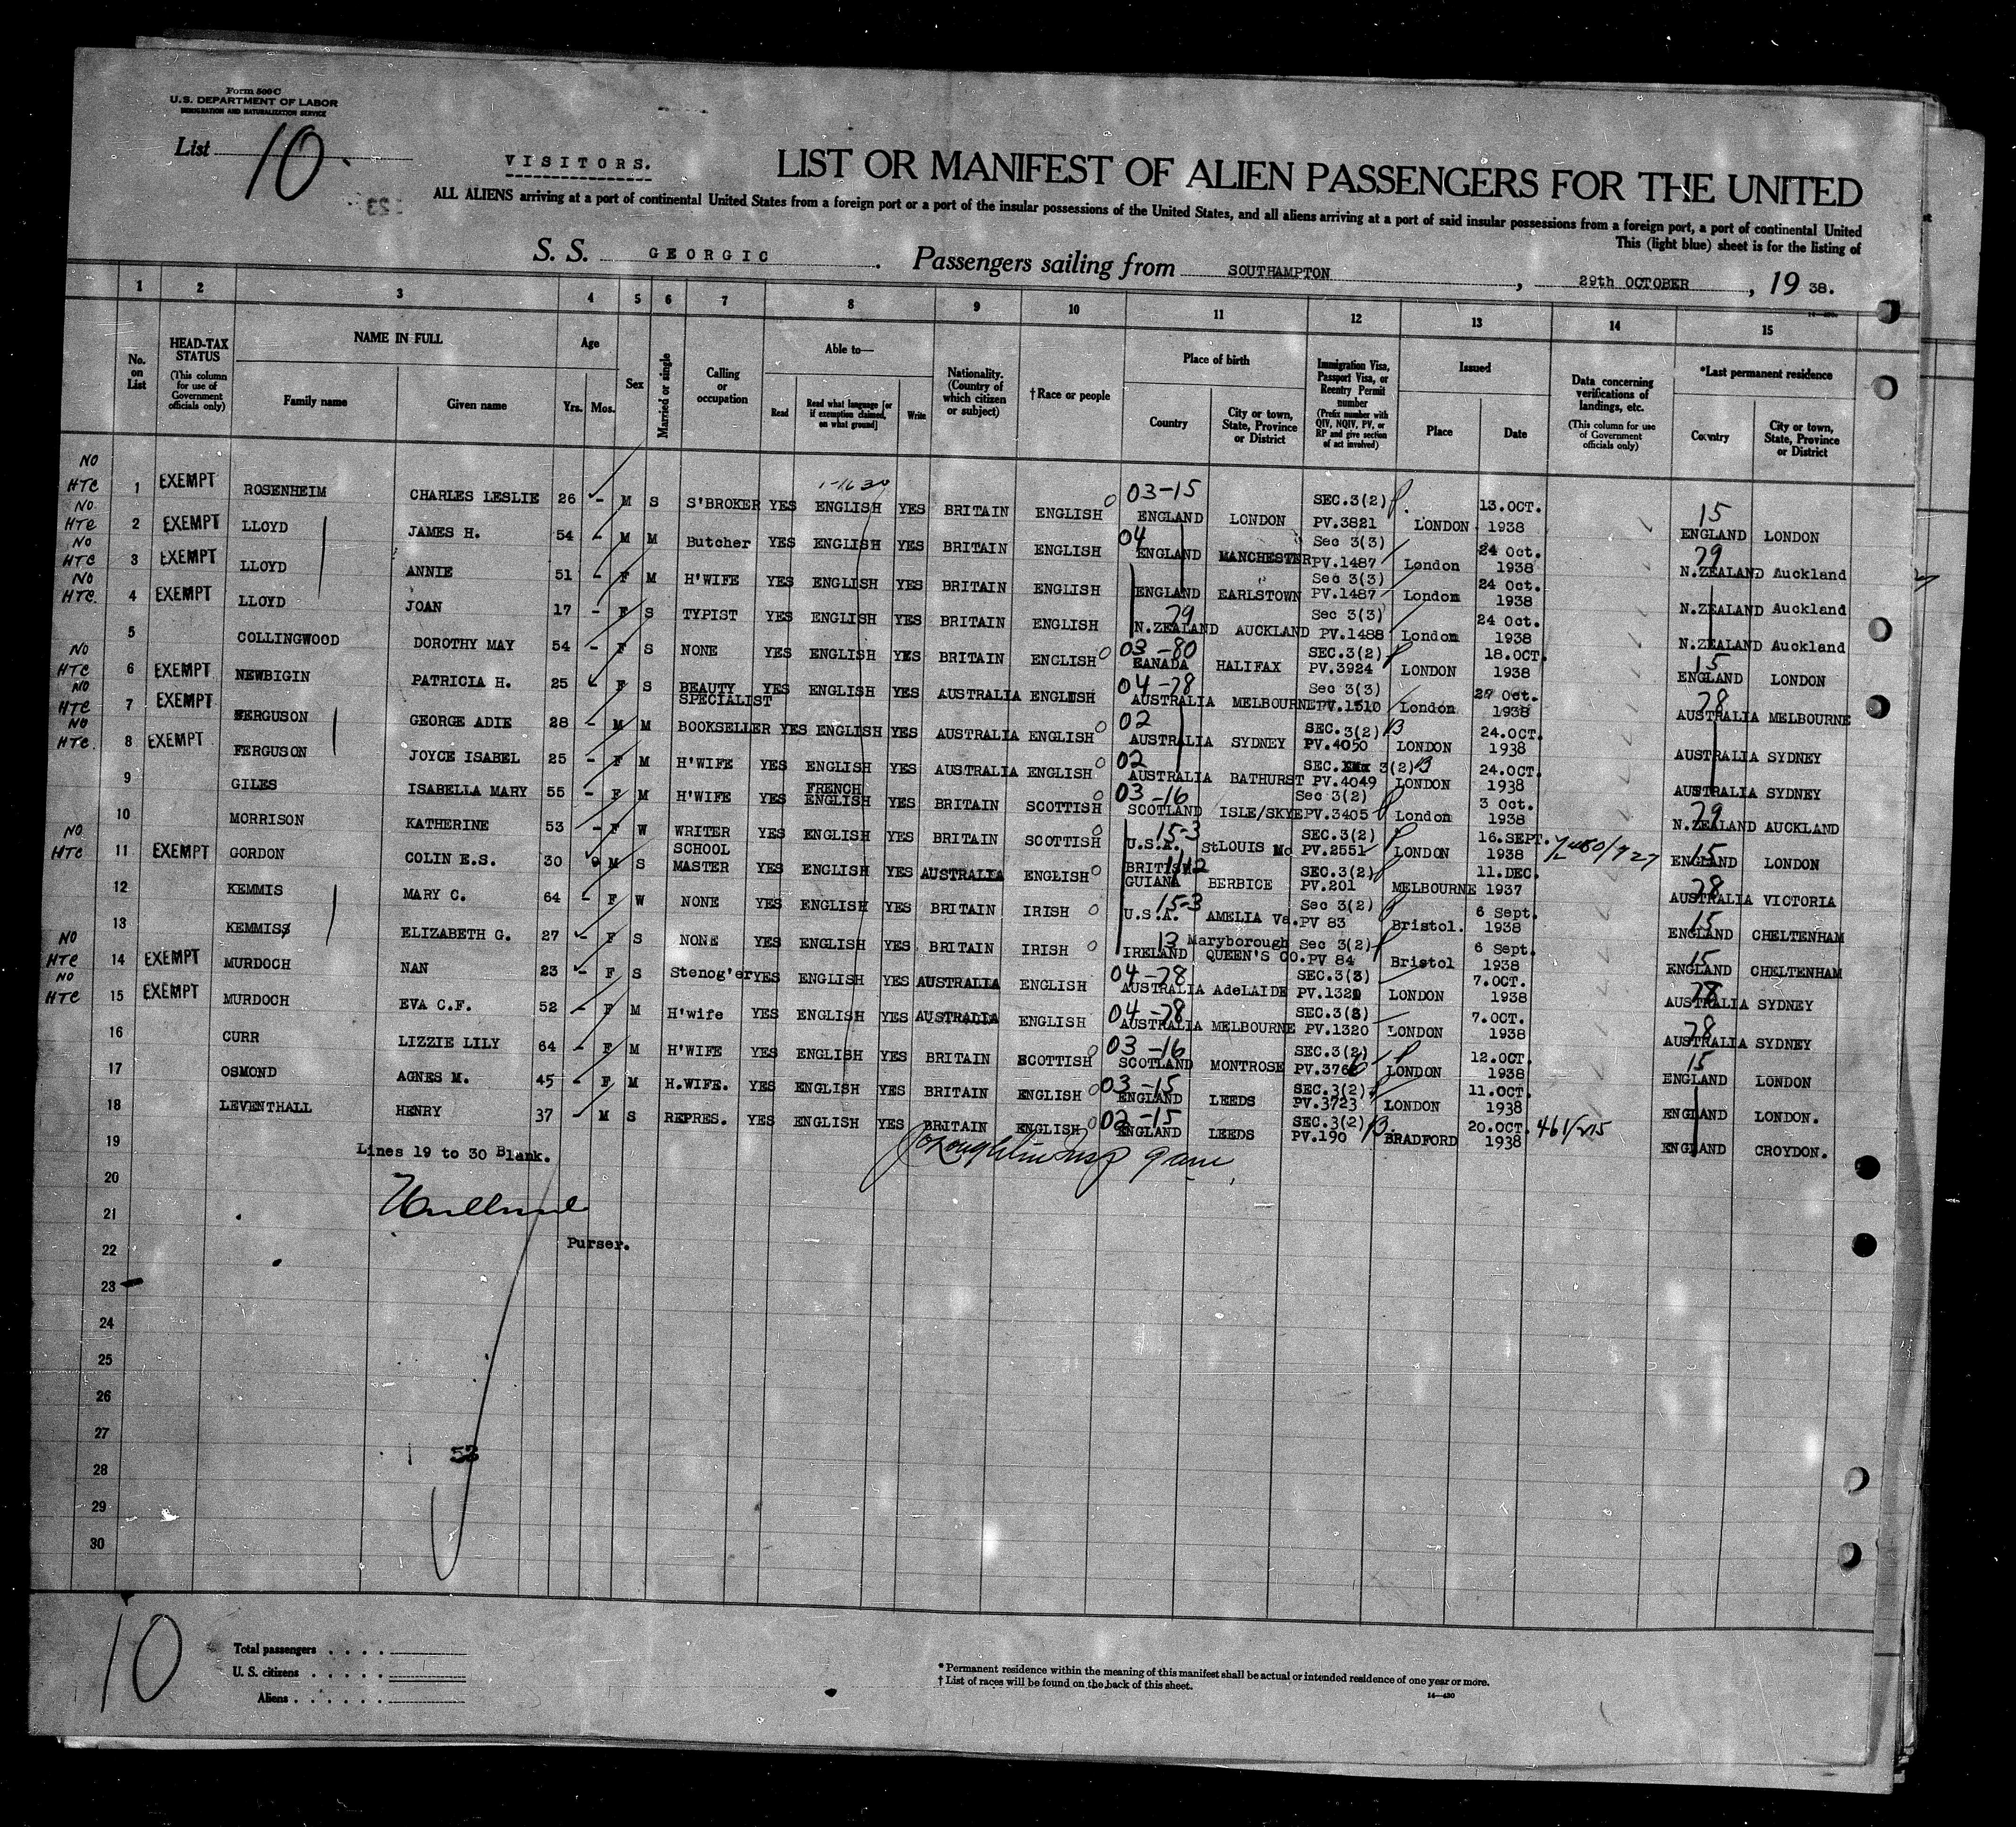 Form 500 C
U.S. DEPARTMENT OF LABOR
IMMIGRATION AND NATURALIZATION SERVICE
List 10
VISITORS.
LIST OR MANIFEST OF ALIEN PASSENGERS FOR THE UNITED
ALL ALIENS arriving at a port of continental United States from a foreign port or a port of the insular possessions of the United States, and all aliens arriving at a port of said insular possessions from a foreign port, a port of continental United
This (light blue) sheet is for the listing of
S. S. GEORGIC. Passengers sailing from SOUTHAMPTON, 29th OCTOBER, 19 38.
1 2 3 4 5 6 7 8 9 10 11 12 13 14 15
No. on List
HEAD-TAX STATUS (This column for use of Government officials only)
NAME IN FULL Family name Given name
Age Yrs. Mos.
Sex
Married or single
Calling or occupation
Able to— Read Read what language [or if exemption claimed, on what ground] Write
Nationality. (Country of which citizen or subject)
†Race or people
Place of birth Country City or town, State, Province or District
Immigration Visa, Passport Visa, or Reentry Permit number (Prefix number with QIV, NQIV, PV, or RP and give section of act involved)
Issued Place Date
Data concerning verifications of landings, etc. (This column for use of Government officials only)
*Last permanent residence Country City or town, State, Province or District
NO HTC 1 EXEMPT ROSENHEIM CHARLES LESLIE 26 - M S S'BROKER YES 1-1630 ENGLISH YES BRITAIN ENGLISH 03-15 ENGLAND LONDON SEC.3(2) PV.3821 LONDON 13.OCT. 1938 15 ENGLAND LONDON
NO HTC 2 EXEMPT LLOYD JAMES H. 54 - M M Butcher YES ENGLISH YES BRITAIN ENGLISH 04 ENGLAND MANCHESTER Sec 3(3) PV.1487 London 24 Oct. 1938 79 N.ZEALAND Auckland
NO HTC 3 EXEMPT LLOYD ANNIE 51 - F M H'WIFE YES ENGLISH YES BRITAIN ENGLISH ENGLAND EARLSTOWN Sec 3(3) PV.1487 London 24 Oct. 1938 N.ZEALAND Auckland
NO HTC. 4 EXEMPT LLOYD JOAN 17 - F S TYPIST YES ENGLISH YES BRITAIN ENGLISH 79 N.ZEALAND AUCKLAND Sec 3(3) PV.1488 London 24 Oct. 1938 N.ZEALAND Auckland
5 COLLINGWOOD DOROTHY MAY 54 - F S NONE YES ENGLISH YES BRITAIN ENGLISH 03-80 CANADA HALIFAX SEC.3(2) PV.3924 LONDON 18.OCT. 1938 15 ENGLAND LONDON
NO HTC 6 EXEMPT NEWBIGIN PATRICIA H. 25 - F S BEAUTY SPECIALIST YES ENGLISH YES AUSTRALIA ENGLISH 04-78 AUSTRALIA MELBOURNE Sec 3(3) PV.1510 London Oct. 1938 78 AUSTRALIA MELBOURNE
NO HTC 7 EXEMPT FERGUSON GEORGE ADIE 28 - M M BOOKSELLER YES ENGLISH YES AUSTRALIA ENGLISH 02 AUSTRALIA SYDNEY SEC.3(2) PV.4050 LONDON 24.OCT. 1938 AUSTRALIA SYDNEY
NO HTC. 8 EXEMPT FERGUSON JOYCE ISABEL 25 - F M H'WIFE YES ENGLISH YES AUSTRALIA ENGLISH 02 AUSTRALIA BATHURST SEC. 3(2) PV.4049 LONDON 24.OCT. 1938 AUSTRALIA SYDNEY
9 GILES ISABELLA MARY 55 - F M H'WIFE YES FRENCH ENGLISH YES BRITAIN SCOTTISH 03-16 SCOTLAND ISLE/SKYE Sec 3(2) PV.3405 London 3 Oct. 1938 79 N.ZEALAND AUCKLAND
10 MORRISON KATHERINE 53 - F W WRITER YES ENGLISH YES BRITAIN SCOTTISH 15-3 U.S.A. StLOUIS Mo SEC.3(2) PV.2551 LONDON 16.SEPT. 1938 15 ENGLAND LONDON
NO HTC 11 EXEMPT GORDON COLIN E.S. 30 M S SCHOOL MASTER YES ENGLISH YES AUSTRALIA ENGLISH BRITISH GUIANA BERBICE SEC.3(2) PV.201 MELBOURNE 11.DEC. 1937 78 AUSTRALIA VICTORIA
12 KEMMIS MARY C. 64 - F W NONE YES ENGLISH YES BRITAIN IRISH 15-3 U.S.A. AMELIA Va. Sec 3(2) PV 83 Bristol. 6 Sept. 1938 15 ENGLAND CHELTENHAM
13 KEMMIS ELIZABETH G. 27 - F S NONE YES ENGLISH YES BRITAIN IRISH 13 IRELAND Maryborough QUEEN'S CO. Sec 3(2) PV 84 Bristol 6 Sept. 1938 15 ENGLAND CHELTENHAM
NO HTC 14 EXEMPT MURDOCH NAN 23 - F S Stenog'er YES ENGLISH YES AUSTRALIA ENGLISH 04-78 AUSTRALIA AdeLAIDE SEC.3(3) PV.1321 LONDON 7.OCT. 1938 78 AUSTRALIA SYDNEY
NO HTC 15 EXEMPT MURDOCH EVA C.F. 52 - F M H'wife YES ENGLISH YES AUSTRALIA ENGLISH 04-78 AUSTRALIA MELBOURNE SEC.3(3) PV.1320 LONDON 7.OCT. 1938 78 AUSTRALIA SYDNEY
16 CURR LIZZIE LILY 64 - F M H'WIFE YES ENGLISH YES BRITAIN SCOTTISH 03-16 SCOTLAND MONTROSE SEC.3(2) PV.3766 LONDON 12.OCT. 1938 15 ENGLAND LONDON
17 OSMOND AGNES M. 45 - F M H.WIFE. YES ENGLISH YES BRITAIN ENGLISH 03-15 ENGLAND LEEDS SEC.3(2) PV.3723 LONDON 11.OCT. 1938 ENGLAND LONDON.
18 LEVENTHALL HENRY 37 M S REPRES. YES ENGLISH YES BRITAIN ENGLISH 02-15 ENGLAND LEEDS SEC.3(2) PV.190 BRADFORD 20.OCT. 1938 ENGLAND CROYDON.
19 Lines 19 to 30 Blank.
20
21
22 Purser.
23
24
25
26
27
28 53
29
30
10
Total passengers
U. S. citizens
Aliens
* Permanent residence within the meaning of this manifest shall be actual or intended residence of one year or more.
† List of races will be found on the back of this sheet.
14—430